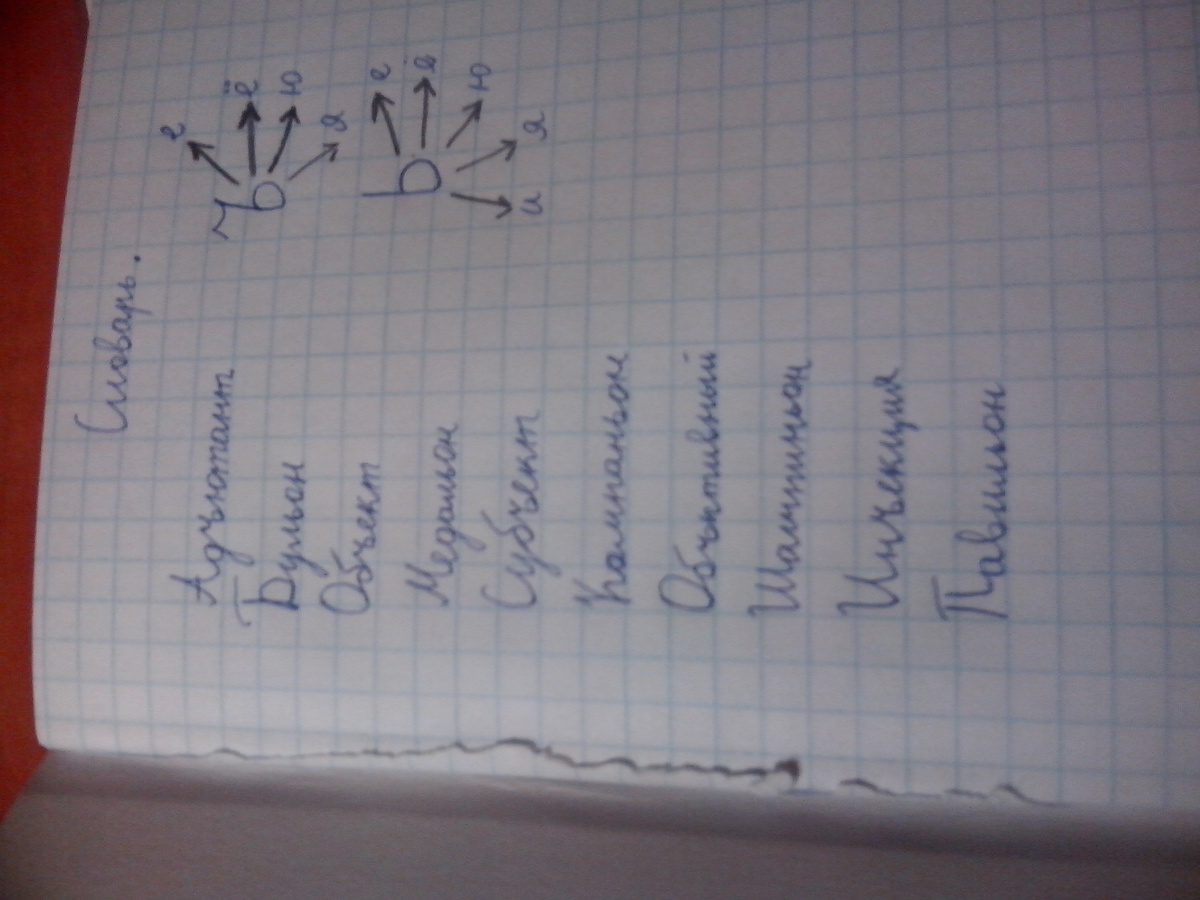 Словарь.
Адъютант
Бульон
Объект
Медальон
Субъект
Компаньон
Объктивный
Шампиньон
Инъекция
Павильон
ъ
е
ё
ю
я
ь
е
ё
ю
я
и